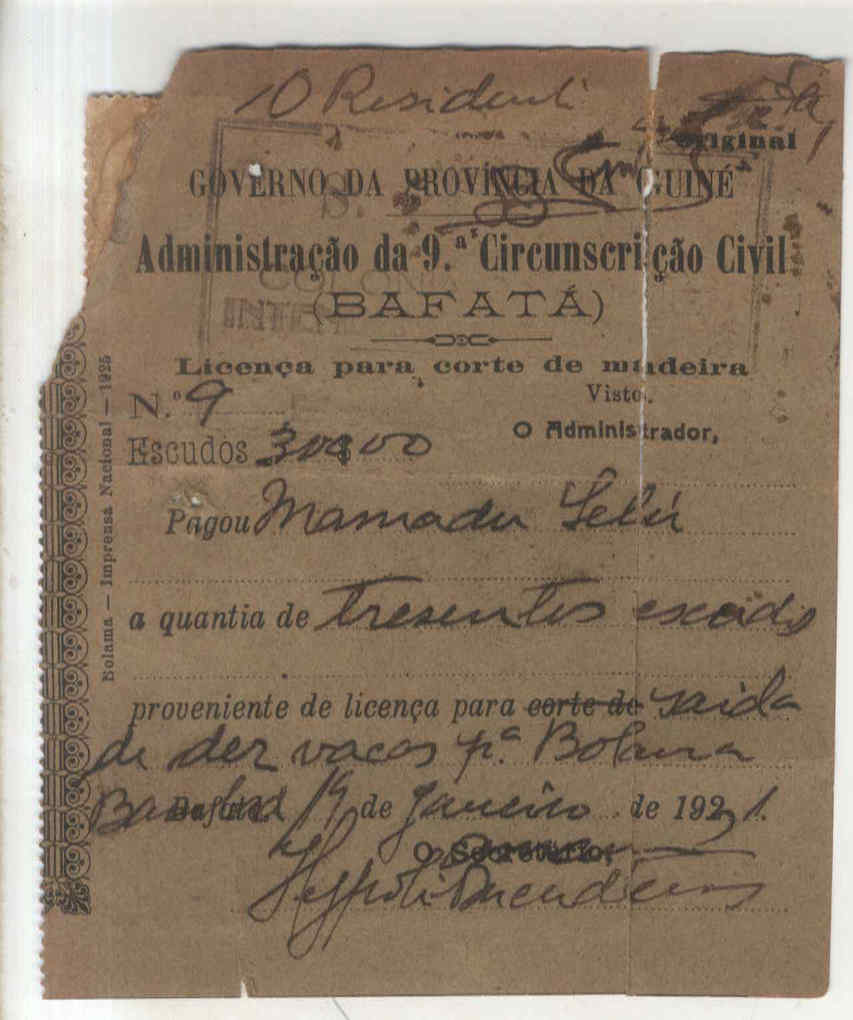 O Resident
Original
GOVERNO DA PROVÍNCIA DA GUINÉ
Administração da 9.ª Circunscrição Civil
(BAFATÁ)
Licença para corte de madeira
N.º 9
Visto.
O Administrador,
Escudos 300$00
Pagou Mamadu
a quantia de tresentos escudos
proveniente de licença para corte de saida
de dez vacas p.ª Bolama
Bafatá 19 de Janeiro de 1931.
O Secretário,
Bolama — Imprensa Nacional — 1925